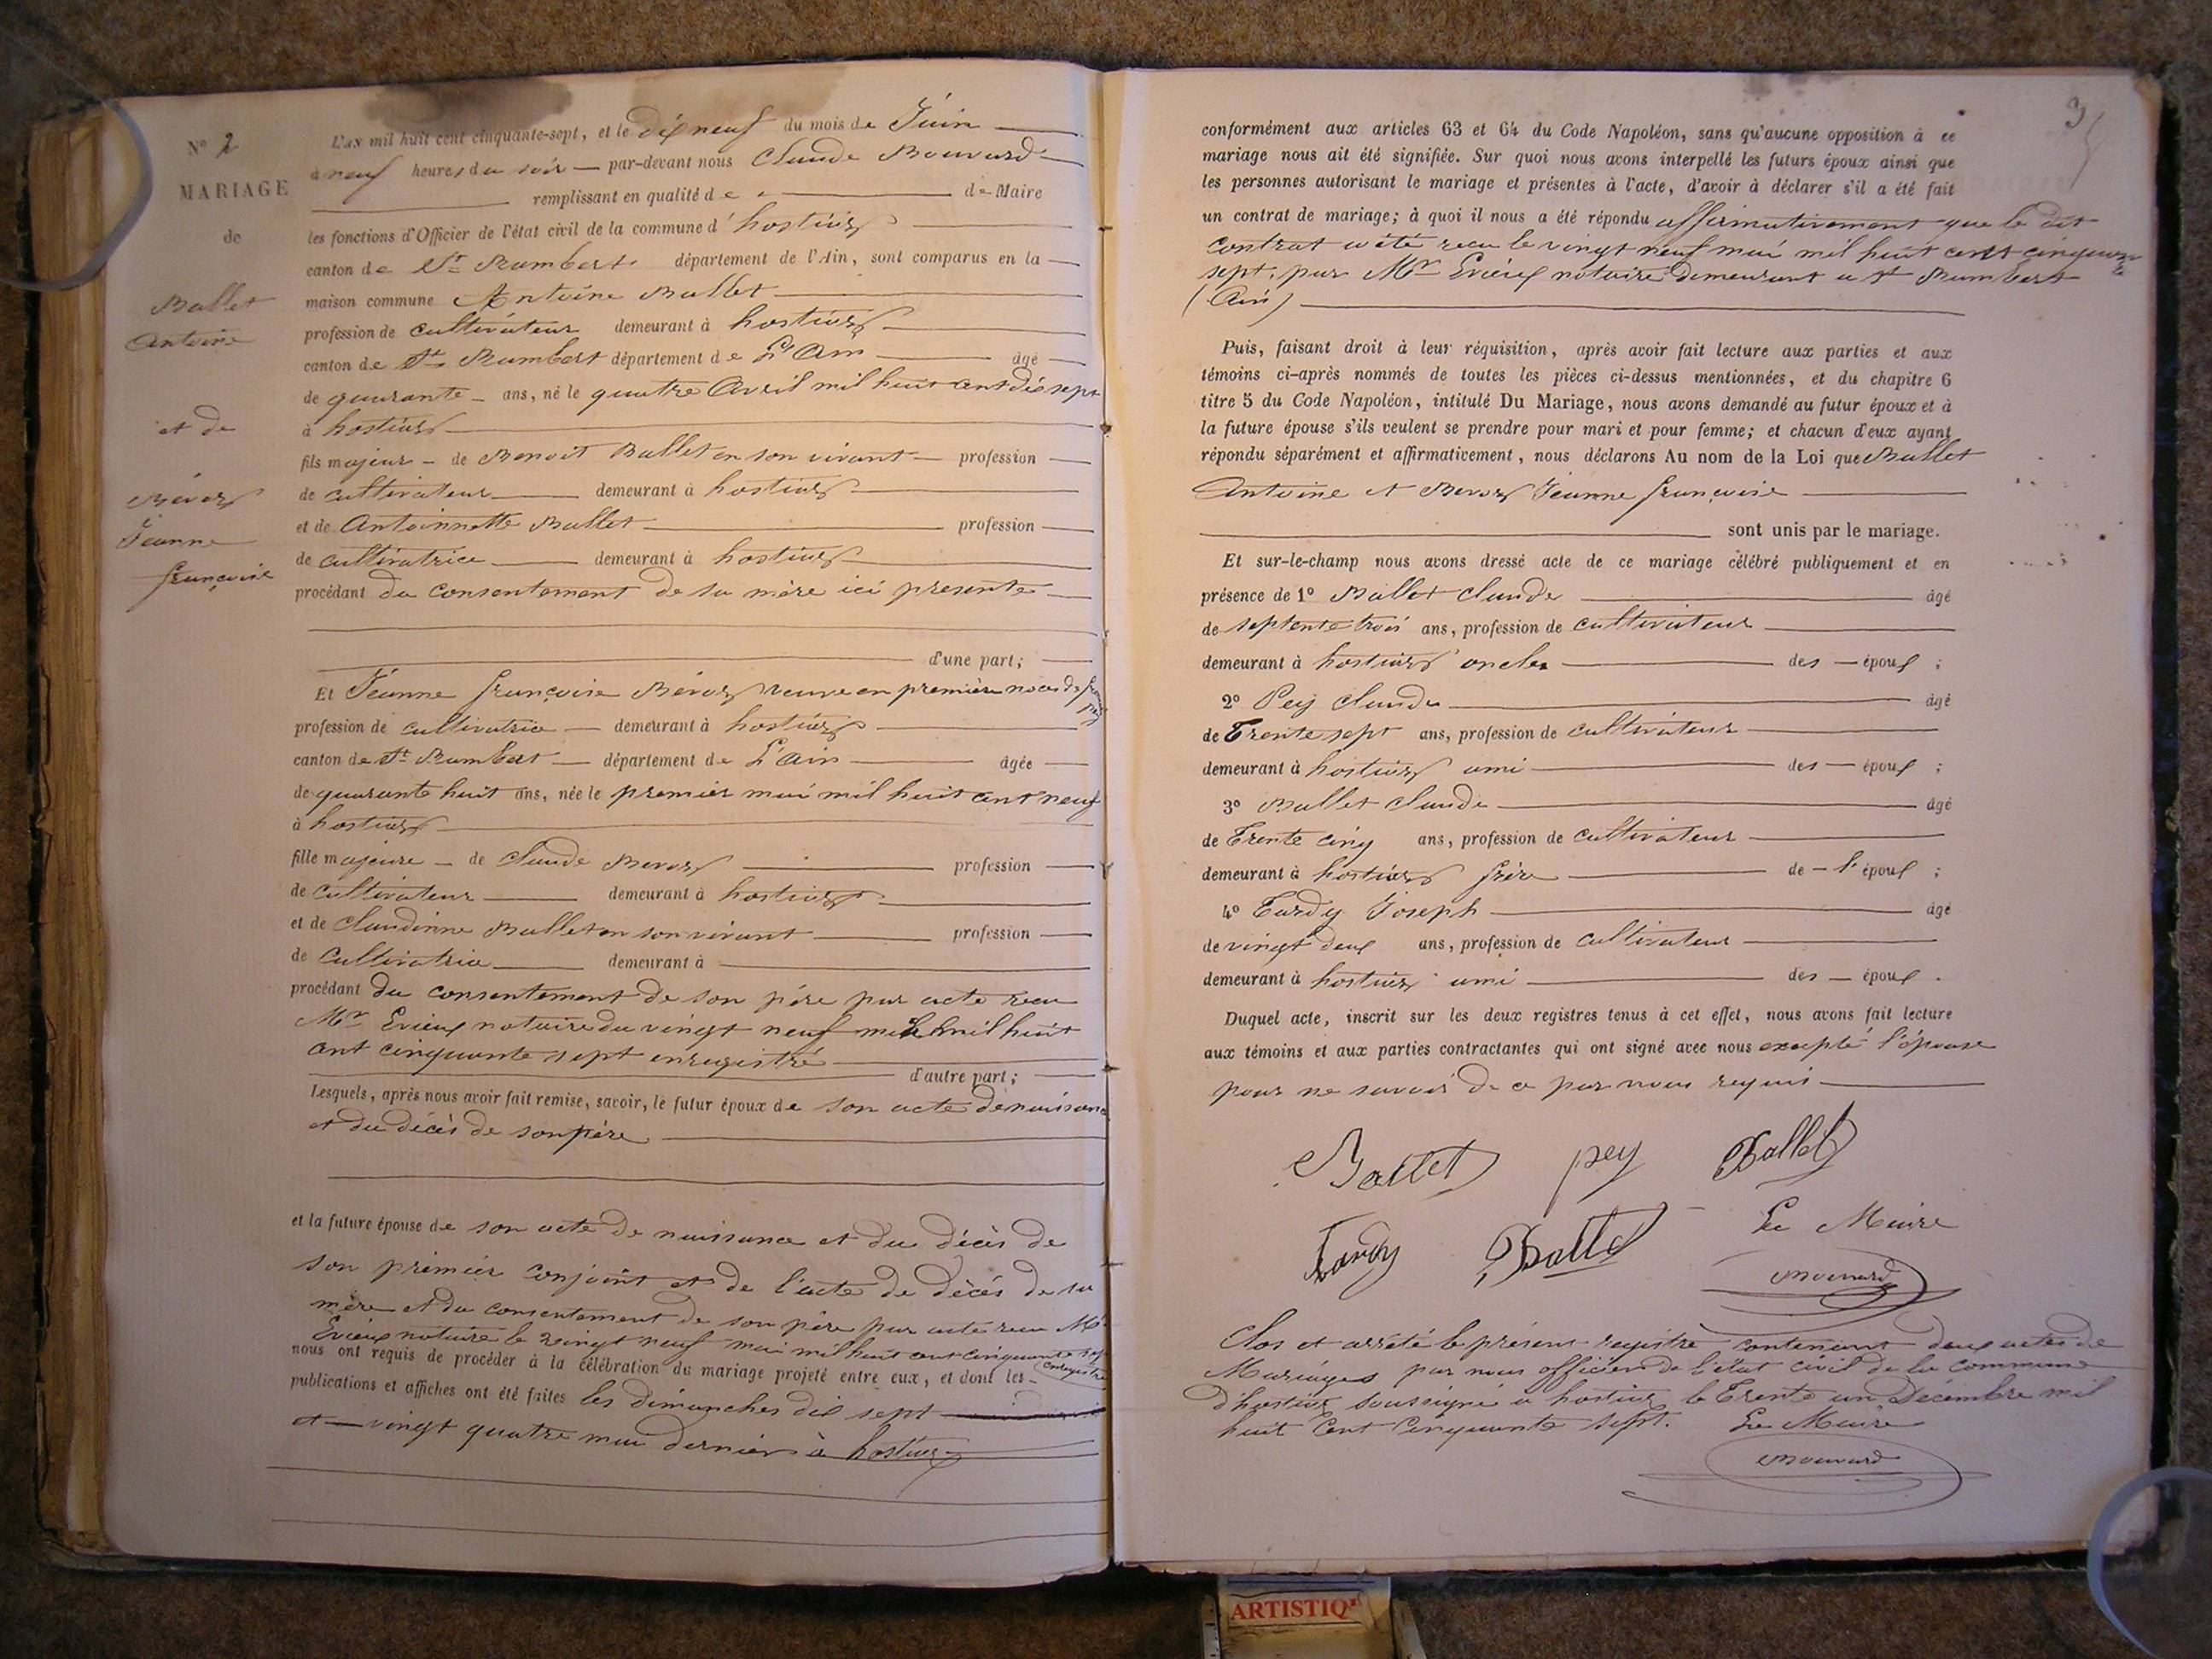 N° 2
MARIAGE
de
Ballet
Antoine
et de
Bévoz
Jeanne
françoise
L'an mil huit cent cinquante-sept, et le dix neuf du mois de Juin
à neuf heures du soir par-devant nous Claude Bouvard
remplissant en qualité de de Maire
les fonctions d'Officier de l'état civil de la commune d'hostiaz
canton de St Rambert département de l'Ain, sont comparus en la
maison commune Antoine Ballet
profession de cultivateur demeurant à hostiaz
canton de St Rambert département de L'Ain âgé
de quarante ans, né le quatre Avril mil huit cent dis sept
à hostiaz
fils majeur de Benoit Ballet en son vivant profession
de cultivateur demeurant à hostiaz
et de Antoinnette Ballet profession
de cultivatrice demeurant à hostiaz
procédant du consentement de sa mère ici presente
d'une part;
Et Jéanne françoise Bévoz veuve en première noces de
profession de cultivatrice demeurant à hostiaz
canton de St Rambert département de L'Ain âgée
de quarante huit ans, née le premier mai mil huit cent neuf
à hostiaz
fille majeure de Claude Bevoz profession
de cultivateur demeurant à hostiaz
et de Claudinne Ballet en son vivant profession
de cultivatrice demeurant à
procédant du consentement de son père par acte recu
Mr Evieux notaire du vingt neuf mai mil huit
cent cinquante sept enregistré
d'autre part;
Lesquels, après nous avoir fait remise, savoir, le futur époux de son acte de naissance
et du décès de son père
et la future épouse de son acte de naissance et du décès de
son prémier conjoint et de l'acte de décès de sa
mère et du consentement de son père par acte recu Mr
Evieux notaire le vingt neuf mai mil huit cent cinquante sept
nous ont requis de procéder à la célébration du mariage projeté entre eux, et dont les
publications et affiches ont été faites les dimanches dix sept
et vingt quatre mai dernier à hostiaz
3
conformément aux articles 63 et 64 du Code Napoléon, sans qu'aucune opposition à ce
mariage nous ait été signifiée. Sur quoi nous avons interpellé les futurs époux ainsi que
les personnes autorisant le mariage et présentes à l'acte, d'avoir à déclarer s'il a été fait
un contrat de mariage; à quoi il nous a été répondu affirmativement que le dit
contrat a été recu le vingt neuf mai mil huit cent cinquante
sept, par Mr Evieux notaire demeurant a st Rambert
(Ain)
Puis, faisant droit à leur réquisition, après avoir fait lecture aux parties et aux
témoins ci-après nommés de toutes les pièces ci-dessus mentionnées, et du chapitre 6
titre 5 du Code Napoléon, intitulé Du Mariage, nous avons demandé au futur époux et à
la future épouse s'ils veulent se prendre pour mari et pour femme; et chacun d'eux ayant
répondu séparément et affirmativement, nous déclarons Au nom de la Loi que Ballet
Antoine et Bevoz Jeanne françoise
sont unis par le mariage.
Et sur-le-champ nous avons dressé acte de ce mariage célébré publiquement et en
présence de 1° Ballet Claude âgé
de septente trois ans, profession de cultivateur
demeurant à hostiaz oncle des époux ;
2° Pey Claude âgé
de Trente sept ans, profession de cultivateur
demeurant à hostiaz ami des époux ;
3° Ballet Claude âgé
de Trente cinq ans, profession de cultivateur
demeurant à hostiaz frère de l'époux ;
4° Tardy Joseph âgé
de vingt deux ans, profession de cultivateur
demeurant à hostiaz ami des époux .
Duquel acte, inscrit sur les deux registres tenus à cet effet, nous avons fait lecture
aux témoins et aux parties contractantes qui ont signé avec nous excepté l'épouse
pour ne savoir de ce par nous requis
Ballet pey Ballet
Tardy Ballet Le Maire
Bouvard
Clos et arrêté le présent registre contenant deux actes de
Mariages par nous officier de l'état civil de la commune
d'hostiaz soussigné a hostiaz le Trente un Décembre mil
huit Cent Cinquante sept. Le Maire
Bouvard
ARTISTIQ